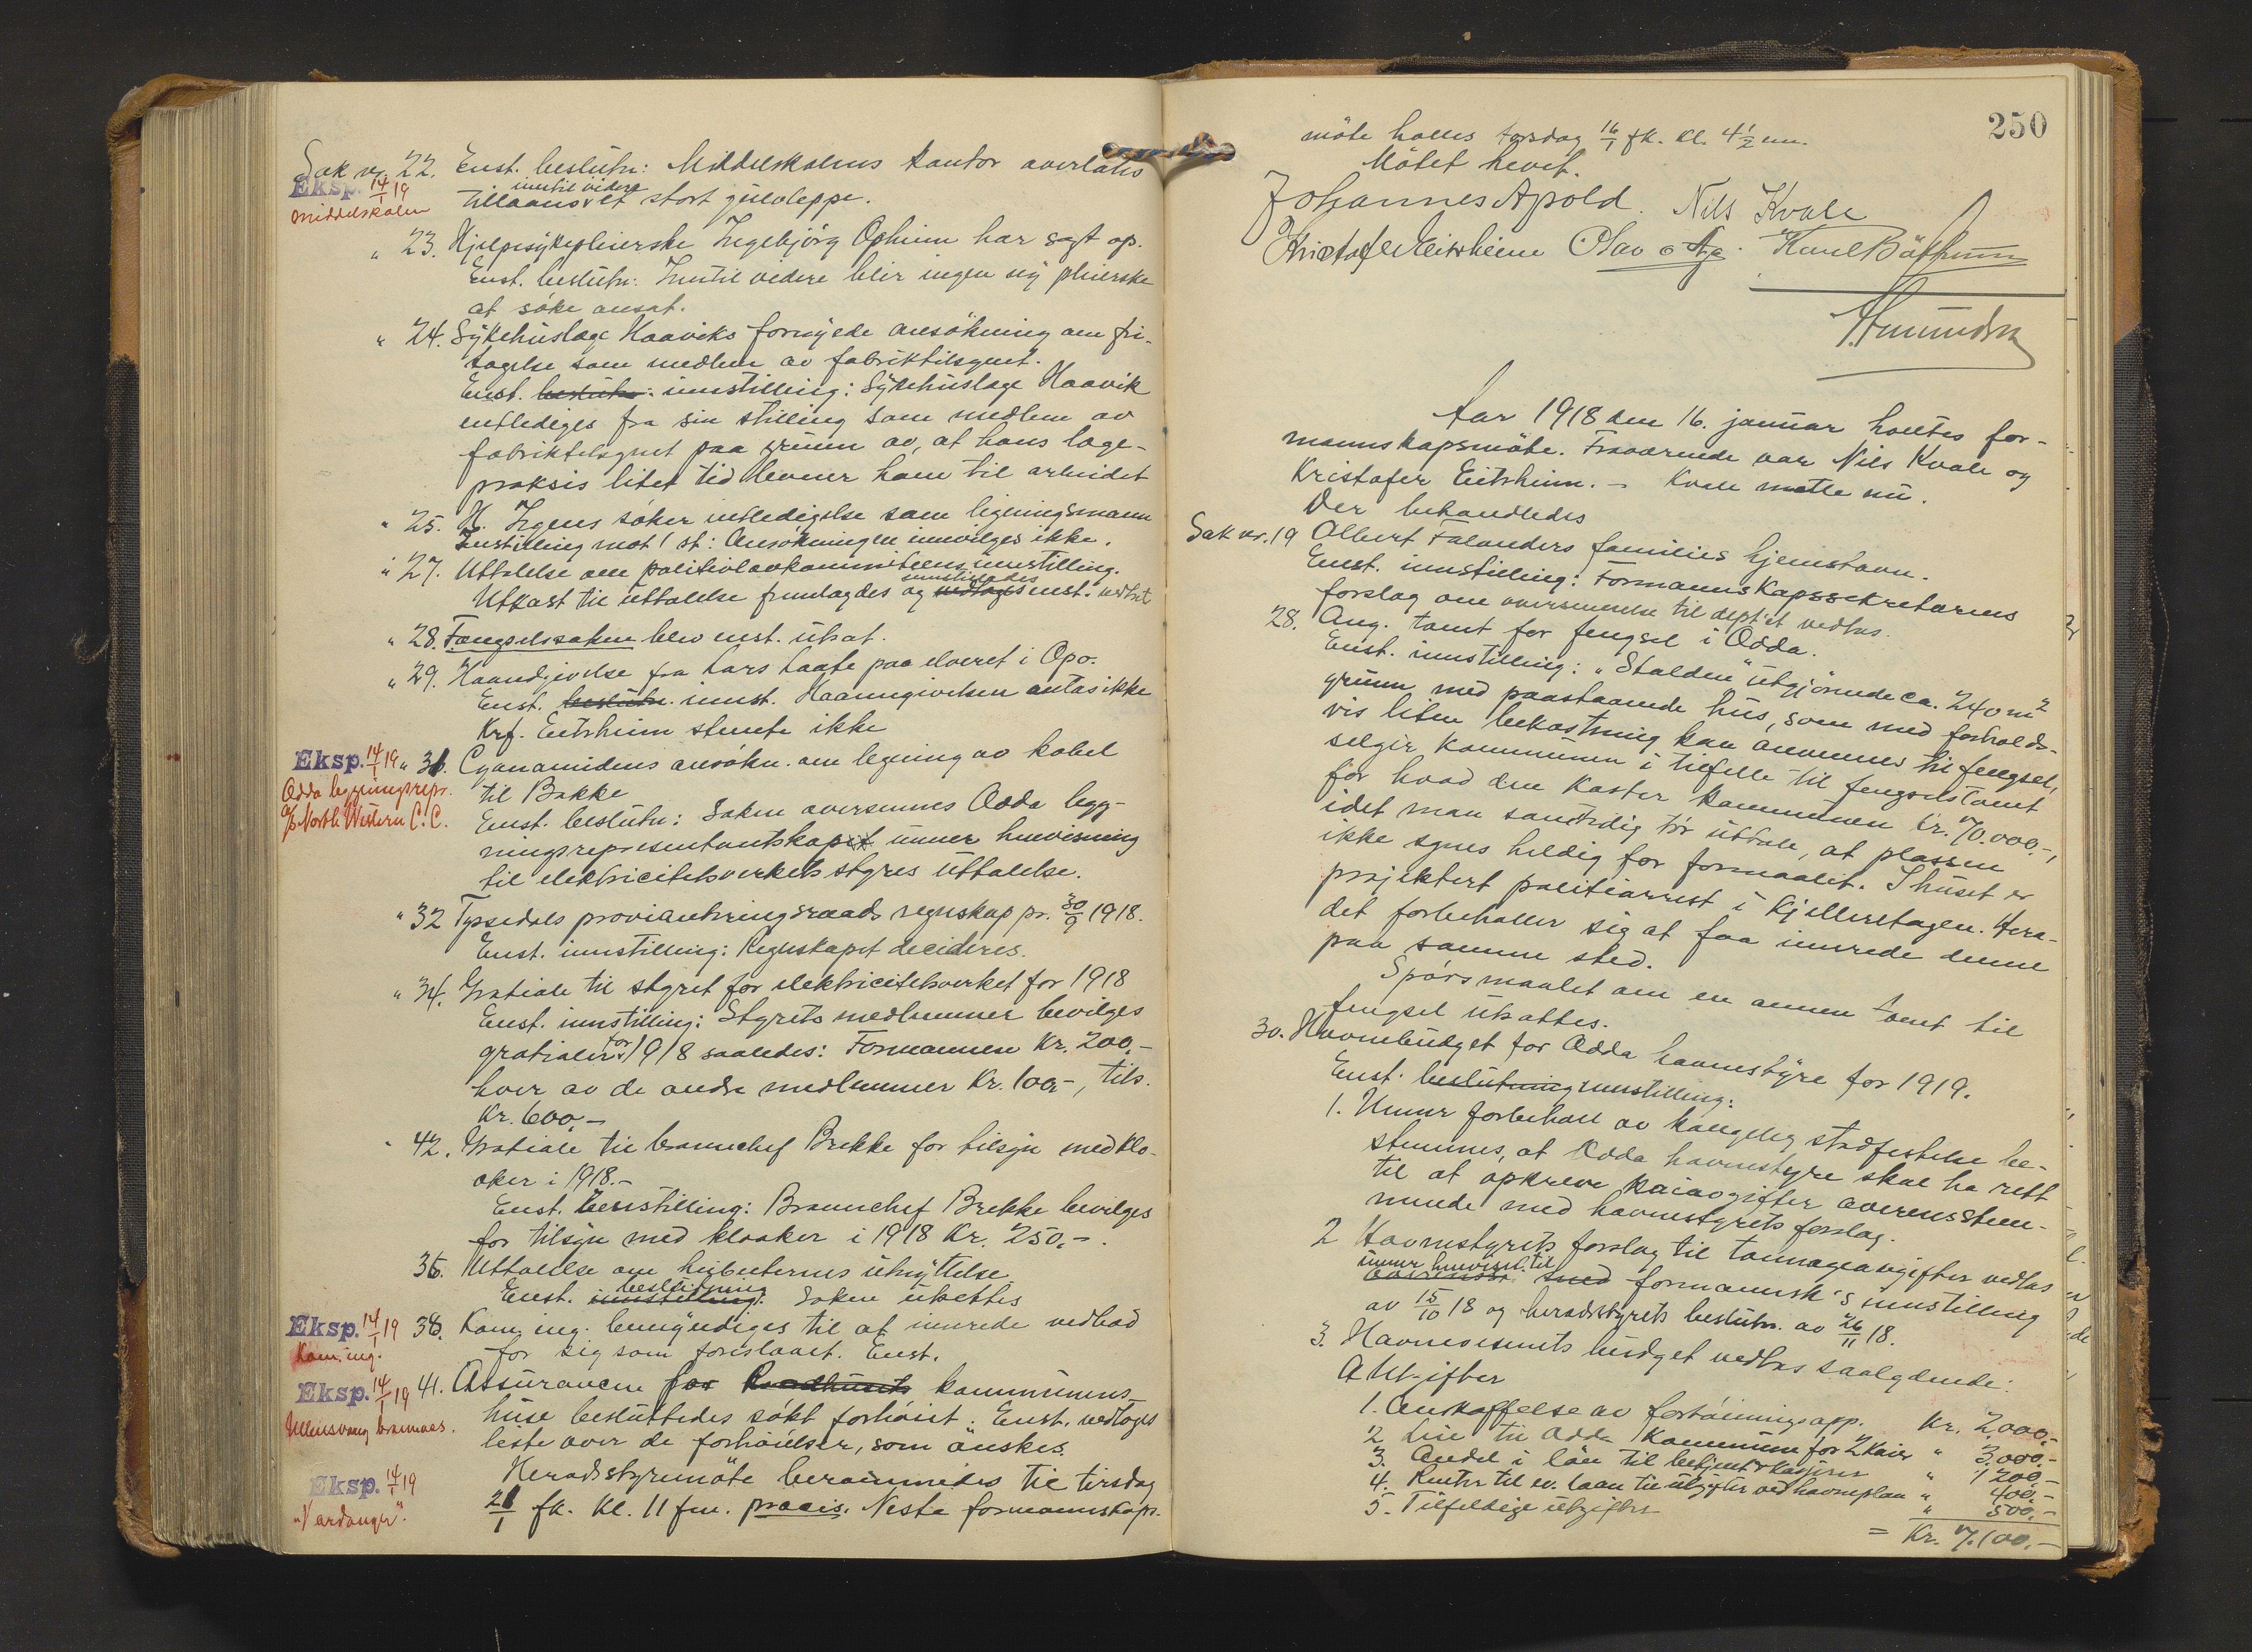 Sak nr. 22. Enst. beslutn: Middelskolens kontor overlates
Eksp. 14/1 19
Middelskolen
inntil videre
tillaans et stort gulvteppe.
" 23. Hjelpesykepleierske Ingebjörg Opheim har sagt op.
Enst. beslutn: Inntil videre blir ingen ny pleierske
at söke ansat.
" 24. Sykehuslæge Haaviks fornyede ansökning om fri-
tagelse som medlem av fabriktilsynet.
Enst. beslutn: innstilling: Sykehuslæge Haavik
entlediges fra sin stilling som medlem av
fabriktilsynet paa grunn av, at hans læge-
praksis litet tid levner ham til arbeidet
" 25. H. Irgens söker entledigelse som ligningsmann
Innstilling mot 1 st: Ansökningen innvilges ikke.
" 27. Uttalelse om politilovkommiteens innstilling.
innstilledes
Utkast til uttalelse fremlagdes og vedtoges enst. vedtat
" 28. Fængselssaken blev enst. utsat.
" 29. Haandgivelse fra Lars Laate paa elveret i Opo.
Enst. beslutn. innst. Haanngivelsen antas ikke
Krf. Eitrheim stemte ikke
Eksp. 14/1 19 " 31. Cyanamidens ansökn. om legning av kabel
Odda bygningsrepr.
A/S North Western C. C.
til Bakke
Enst. beslutn: Saken oversennes Odda bygg-
ningsrepresentantskap unner henvisning
til elektricitetsverkets styres uttalelse.
" 32 Tyssedals provianteringsraads regnskap pr. 30/9 1918.
Enst. innstilling: Regnskapet decideres.
" 34. Gratiale til styret for elektricitetsverket for 1918
Enst. innstilling: Styrets medlemmer bevilges
gratialer for 1918 saaledes: Formannen Kr. 200,-
hver av de andre medlemmer Kr. 100,-, tils.
Kr. 600,-
" 42. Gratiale til brannchef Brekke for tilsyn med klo-
aker i 1918.-
Enst. innstilling: Brannchef Brekke bevilges
for tilsyn med kloaker i 1918 Kr. 250,-.
35. Uttalelse om herbuternes utnyttelse.
beslutning
Enst. innstilling: Saken utsettes
Eksp. 14/1 19 38. Kom. ing. bemyndiges til at innrede vedbod
Kom. ing.
for sig som foreslaaet. Enst.
Eksp. 14/1 19 41. Assurancen for Raadhusets kommunens
Ullensvang brannas.
huse besluttedes sökt forhöiet. Enst. vedtoges
liste over de forhöielser, som önskes.
Eksp. 14/1 19
"Hardanger".
Heradsstyremöte berammedes til tirsdag
21/1 fk. kl. 11 fm. præcis. Neste formannskaps-
250
möte holles torsdag 16/1 fk. kl. 4 1/2 em.
Mötet hevet.
Johannes Apold. Nils Kvale
Kristofer Eitrheim Olav Aga. Karl Bötun
Amundsen
Aar 1918 den 16. januar holltes for-
mannskapsmöte. Fraværende var Nils Kvale og
Kristofer Eitrheim. - Kvale mötte nu.
Der behandledes
Sak nr. 19 Albert Falanders families hjemstavn.
Enst. innstilling: Formannskapssekretærens
forslag om oversennelse til dept'et vedtas.
28. Ang. tomt for fengsel i Odda.
Enst. innstilling: "Stalden" utgjörende ca. 240 m2
grunn med paastaaende hus, som med forholds-
vis liten bekostning kan anvennes til fengsel,
selger kommunen i tilfelle til fengselstomt
for hvad den koster kommunen kr. 70.000.-,
idet man samtidig tör uttale, at plassen
ikke synes heldig for formaalet. I huset er
projektert politiarrest i kjelleretagen. Hera-
det forbeholler sig at faa innrede denne
paa samme sted.
Spörsmaalet om en annen tomt til
fengsel utsattes.
30. Havnebudget for Odda havnestyre for 1919.
Enst. beslutning innstilling:
1. Unner forbehold av kongelig stadfestelse be-
stemmes, at Odda havnestyre skal ha rett
til at opkreve kaiavgifter overensstem-
mende med havnestyrets forslag.
2 Havnestyrets forslag til tonnageavgifter vedtas
unner henvisn. til
med formannsk's innstilling
av 15/10 18 og heradsstyrets beslutn. av 26/11 18.
3. Havnevesenets budget vedtas saalydende:
A Utgifter
1. Anskaffelse av fortöiningsapp. Kr. 2,000,-
2. Leie til Odda kommune for 2 kaier " 3,000.-
3. Andel i lön til betjent & kasserer " 1200,-
4. Renter til ev. laan til utgifter ved havneplan " 400,-
5. Tilfeldige utgifter " 500,-
= Kr. 7.100.-